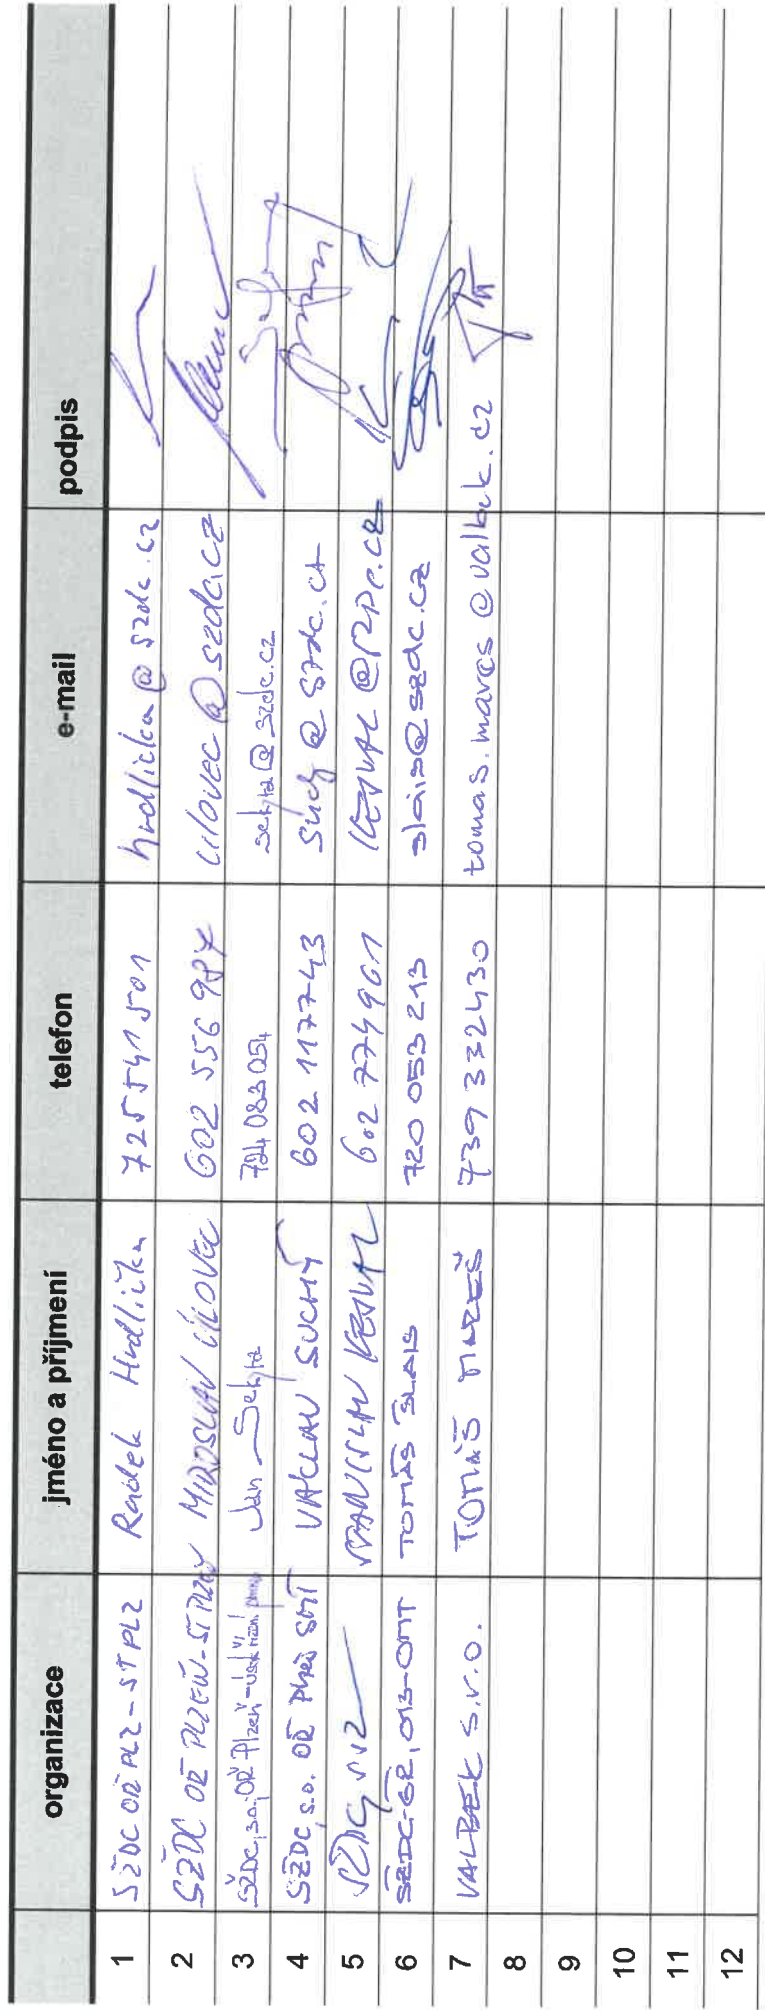 organizace jméno a příjmení telefon e-mail podpis
1 SŽDC OŘ PLZ - ST PLZ Radek Hrdlička 725 541 501 hrdlicka@szdc.cz
2 SŽDC OŘ PLZEŇ - ST PLZEŇ MIROSLAV ÚLOVEC 602 556 987 ulovec@szdc.cz
3 SŽDC, s.o., OŘ Plzeň - Jan Sekyra 724 083 054 sekyra@szdc.cz
4 SŽDC, s.o. OŘ Plzeň SMT VÁCLAV SUCHÝ 602 117743 Suchy@szdc.cz
5 SŽDC 602 774961
6 SŽDC-GŘ, O13-OMT TOMÁŠ SLAIS 720 053 213 slais@szdc.cz
7 VALBEK s.r.o. TOMÁŠ MAREŠ 739 332430 tomas.mares@valbek.cz
8
9
10
11
12